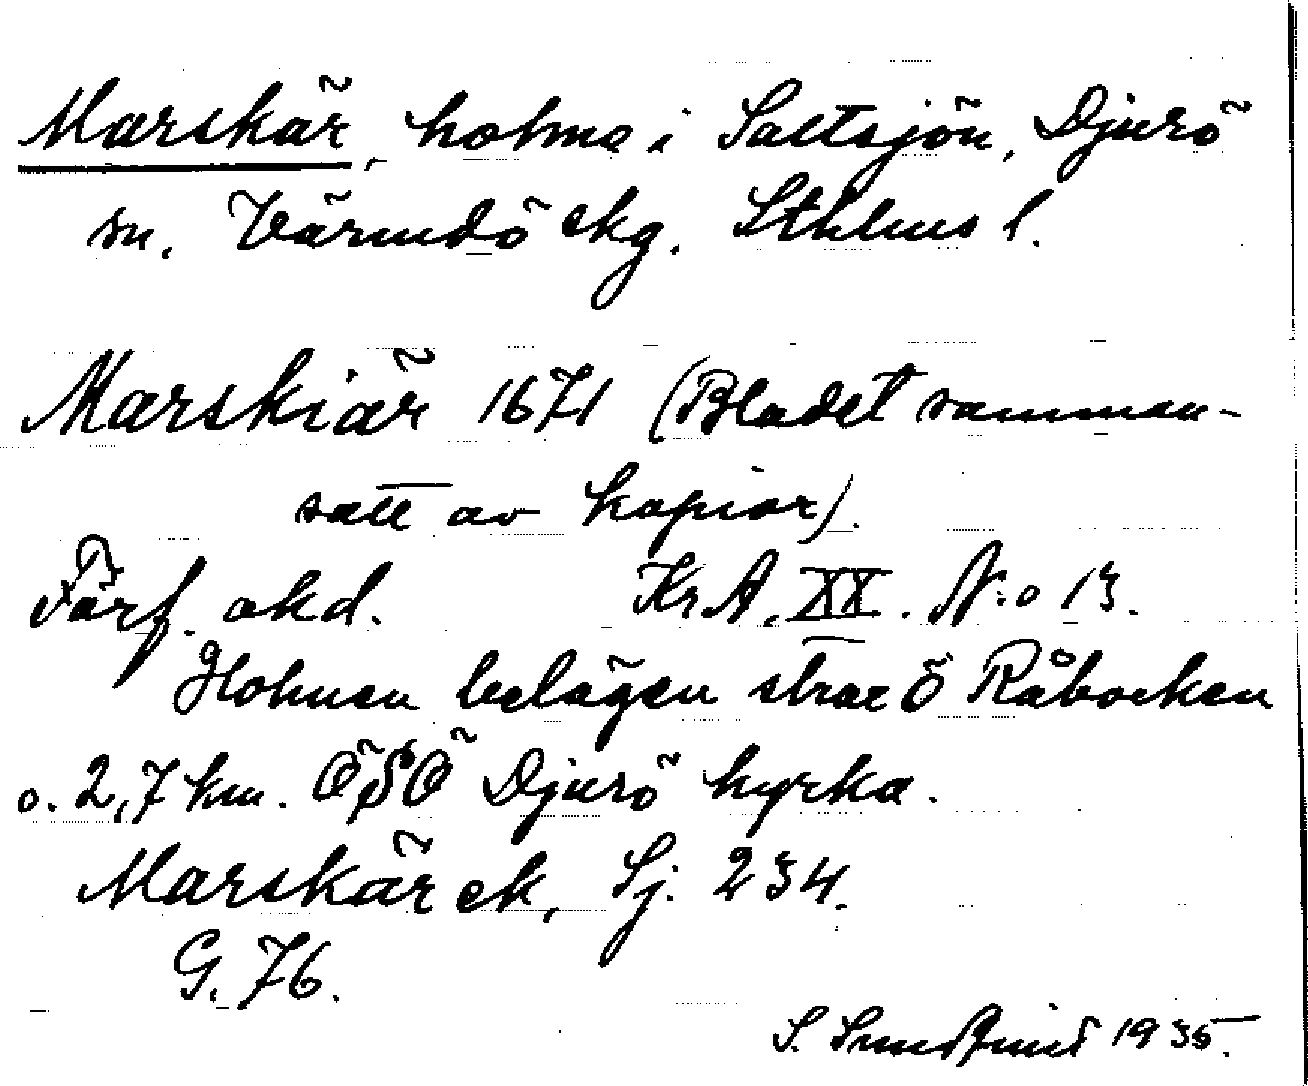 Marskär, holme i Saltsjön, Djurö
sn. Värmdö skg. Sthlms l.
Marskiär 1671 (Bladet samman-
satt av kopior).
Förf. okd. Kr.A. XX. N:o 13.
Holmen belägen strax Ö Råbocken
o. 2,7 km. ÖSÖ Djurö kyrka.
Marskär ek, Sj. 234.
G. 76.
S. 1935.